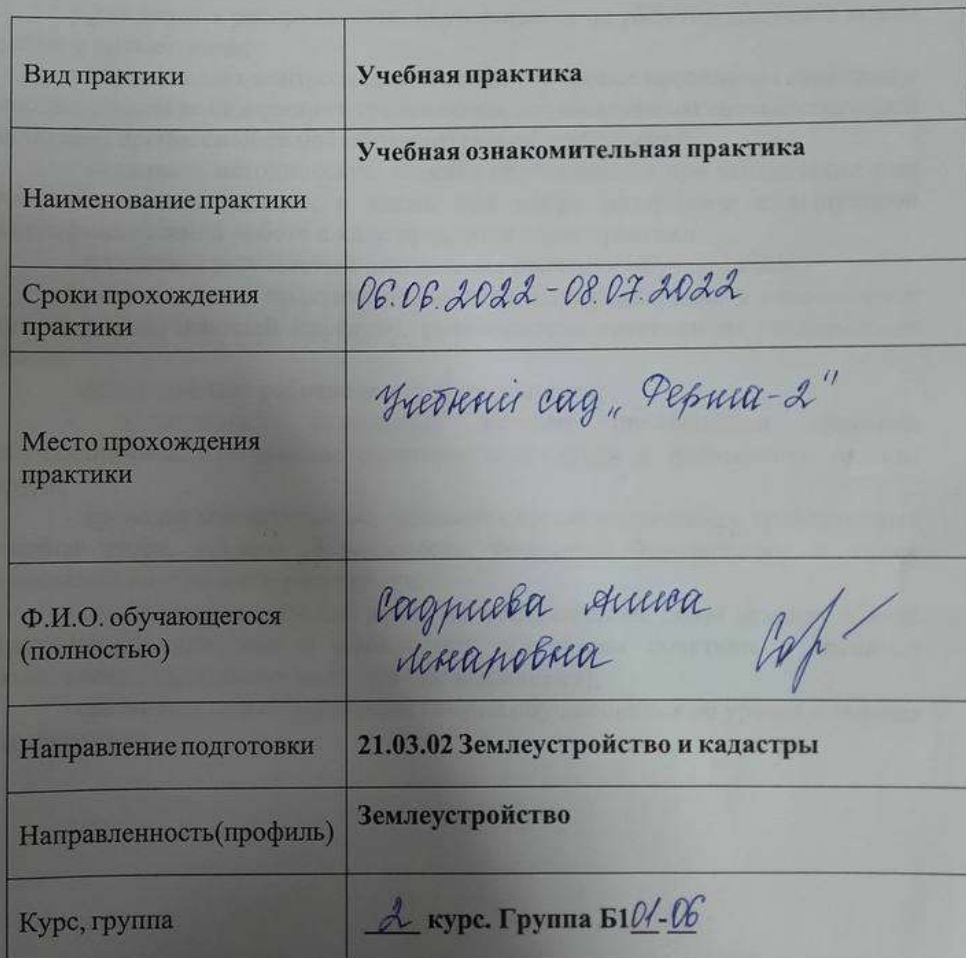 Вид практики
Учебная практика
Наименование практики
Учебная ознакомительная практика
Сроки прохождения
практики
06.06.2022-08.07.2022
Место прохождения
практики
Учебный сад „Ферма-2"
Ф.И.О. обучающегося
(полностью)
Садриева
Ленаровна
Направление подготовки
21.03.02 Землеустройство и кадастры
Направленность(профиль)
Землеустройство
Курс, группа
2 курс. Группа Б101-06